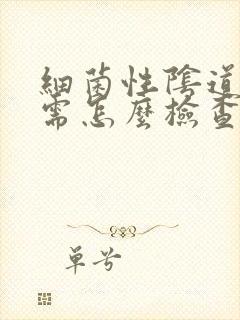 細菌性陰道
需怎麼檢查
單兮